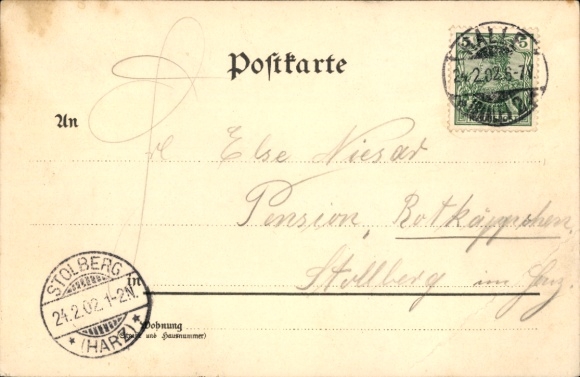 Postkarte
HALLE
24.2.02.5-7V
5
An
Frl Else Niesar
Pension, Rotkäppchen,
in
Stollberg im Harz.
STOLBERG
24.2.02.1-2N.
* (HARZ) *
Wohnung
(Straße und Hausnummer)